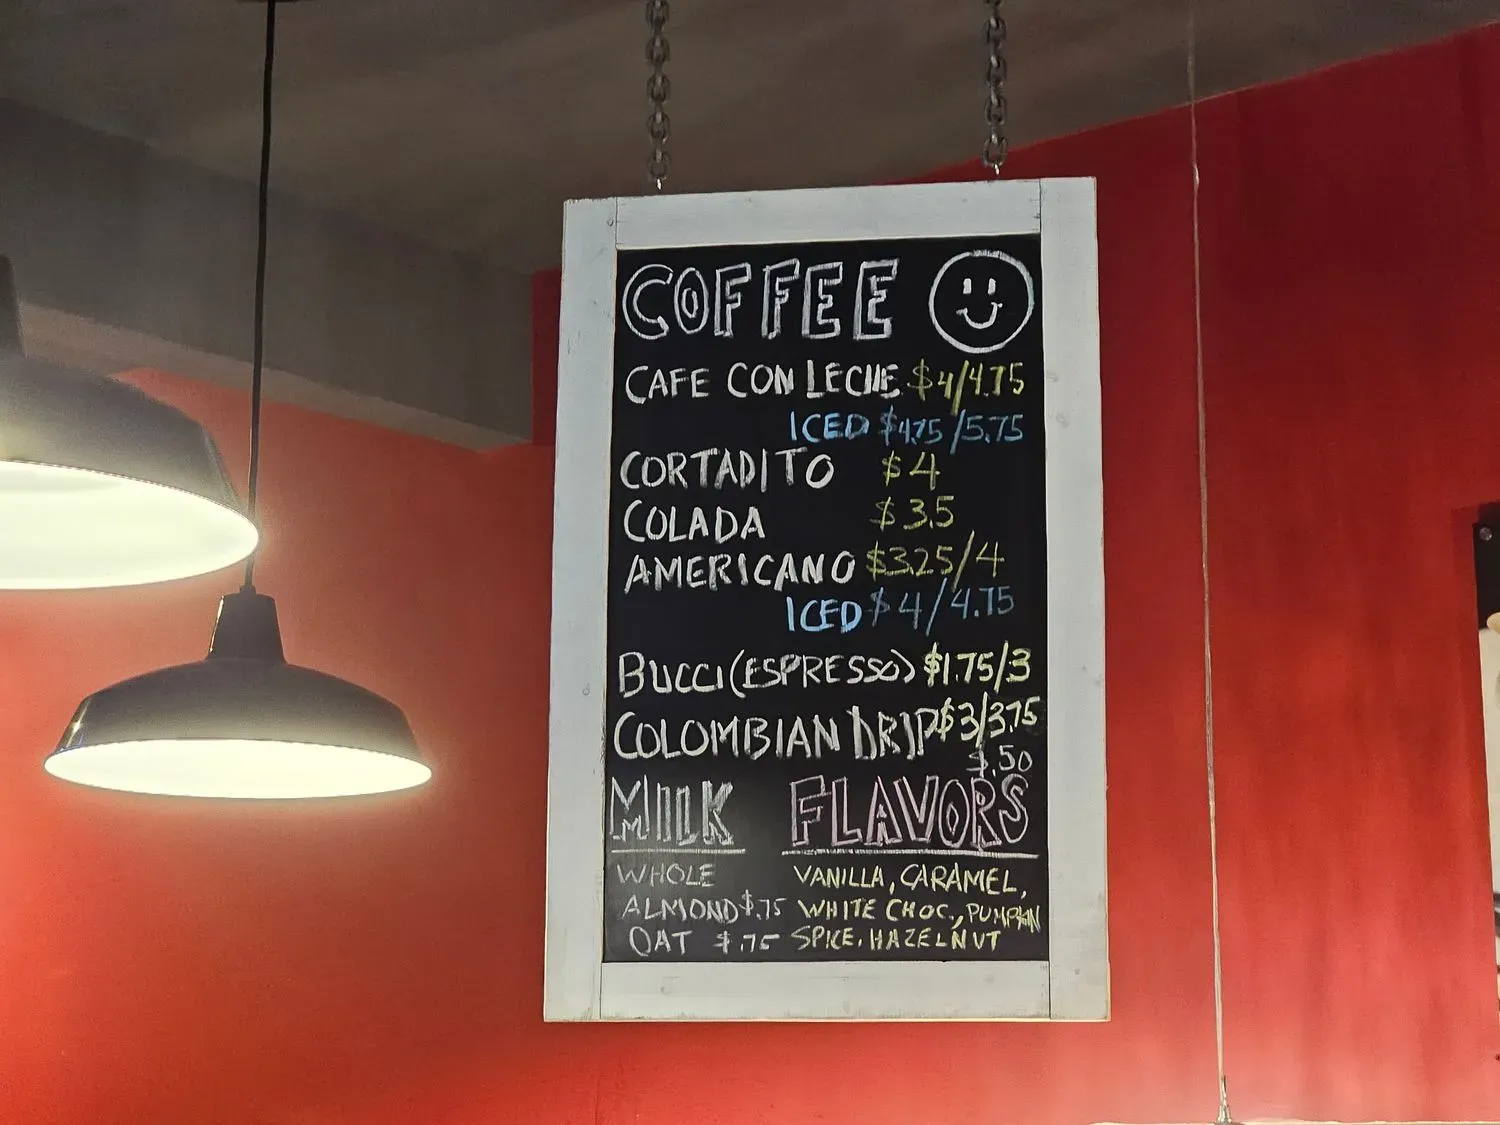 COFFEE
CAFE CON LECHE $4/4.75
ICED $4.75/5.75
CORTADITO $4
COLADA $3.5
AMERICANO $3.25/4
ICED $4/4.75
BUCCI (ESPRESSO) $1.75/3
COLOMBIAN DRIP $3/3.75
$.50
MILK FLAVORS
WHOLE VANILLA, CARAMEL,
ALMOND $.75 WHITE CHOC., PUMPKIN
OAT $.75 SPICE, HAZELNUT